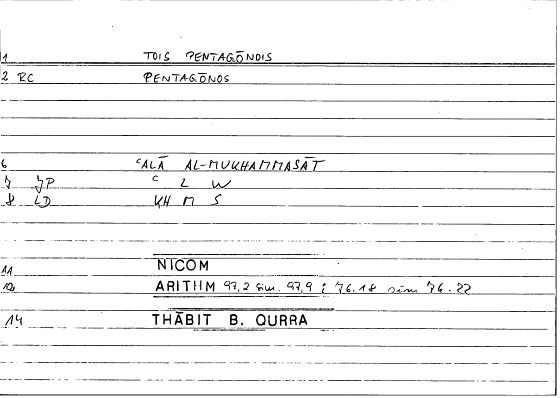 1 TOIS PENTAGŌNOIS
2 RC PENTAGŌNOS
6 ʿALĀ AL-MUKHAMMASĀT
7 JP ʿ L W
8 LD KH M S
11 NICOM
12 ARITHM 97,2 sim. 97,9 ; 76.18 sim 76.22
14 THĀBIT B. QURRA